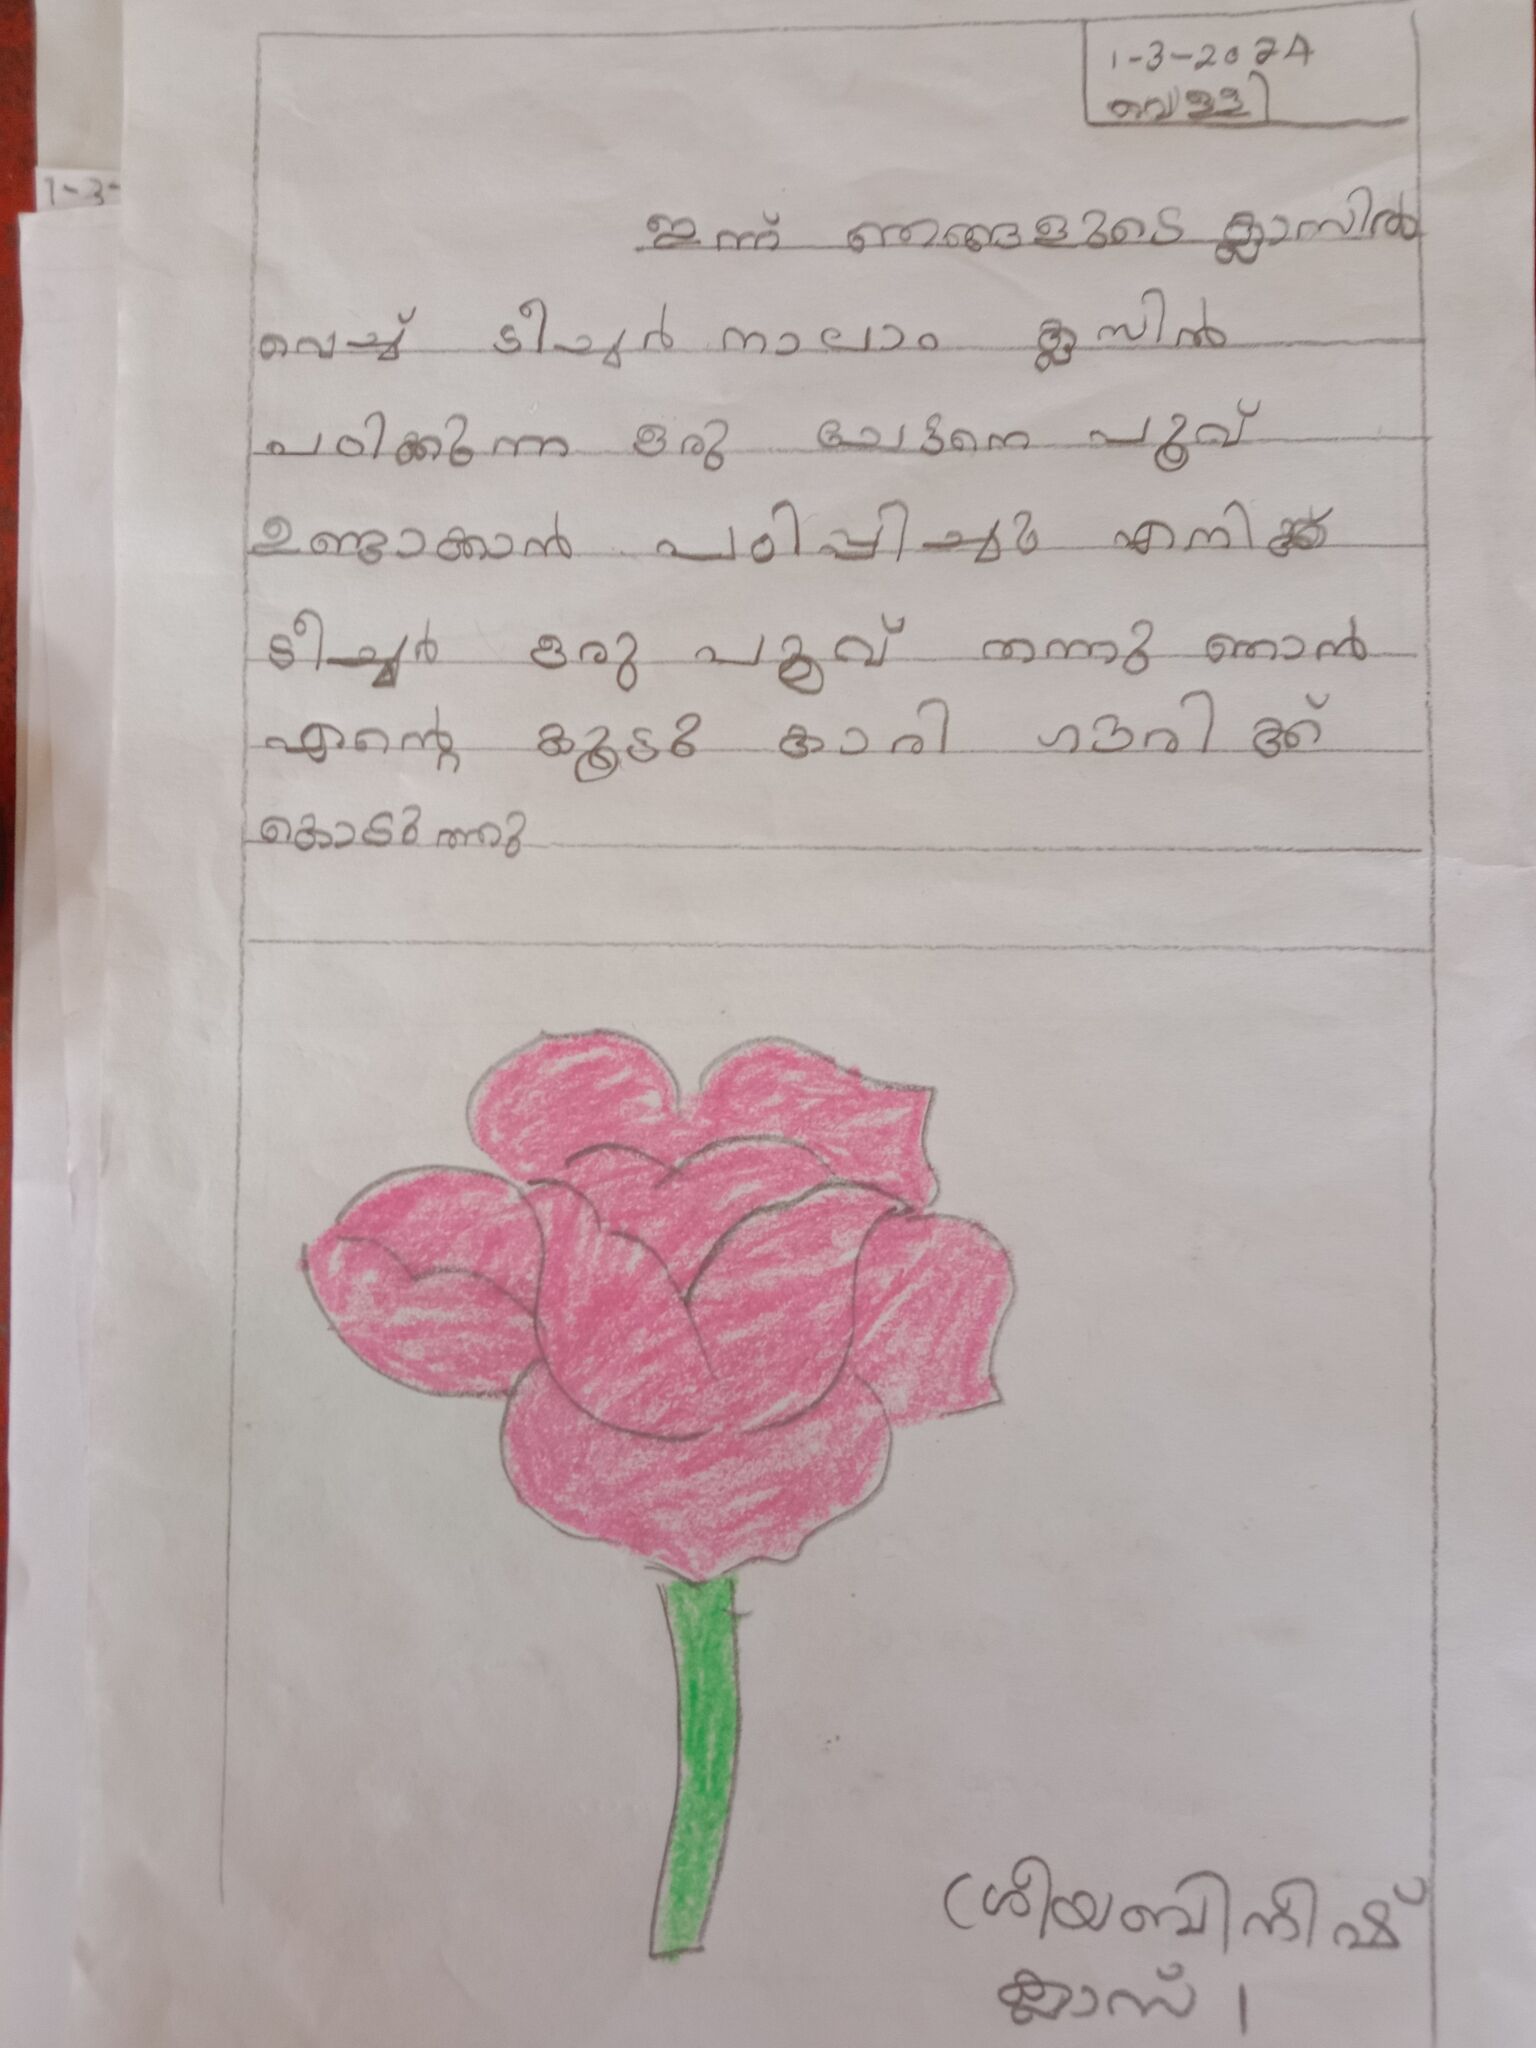 1-3-2024
വെള്ളി
1-3-
ഇന്ന് ഞങ്ങളുടെ ക്ലാസിൽ
വെച്ച് ടീച്ചർ നാലാം ക്ലസിൽ
പഠിക്കുന്ന ഒരു പൂവ്
ഉണ്ടാക്കാൻ പഠിപ്പിച്ചു എനിക്ക്
ടീച്ചർ ഒരു പൂവ് തന്നു ഞാൻ
എന്റെ കൂടുകാരി ഗൗരിക്ക്
കൊടുത്തു
ശ്രീയബിനീഷ്
ക്ലാസ് 1